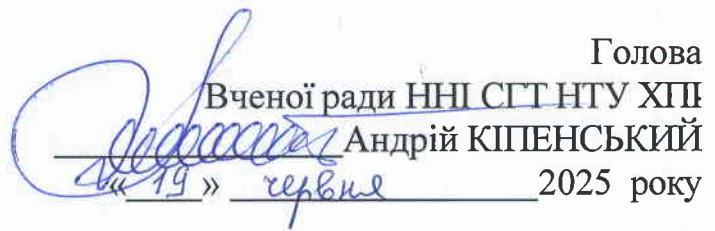 Голова
Вченої ради ННІ СГТ НТУ ХПІ
Андрій КІПЕНСЬКИЙ
«19» червня 2025 року